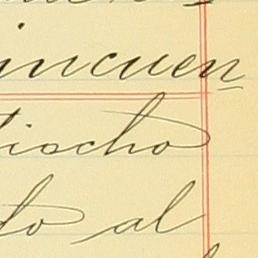 incuen
tiocho
do al